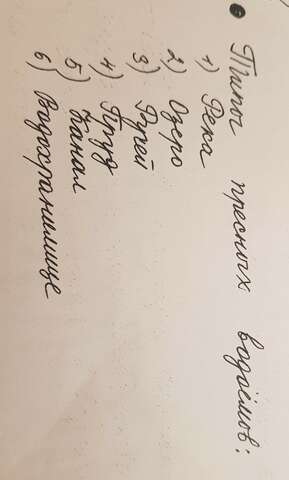 Типы пресных водоёмов:
1) Река
2) Озеро
3) Ручей
4) Пруд
5) Канал
6) Водохранилище